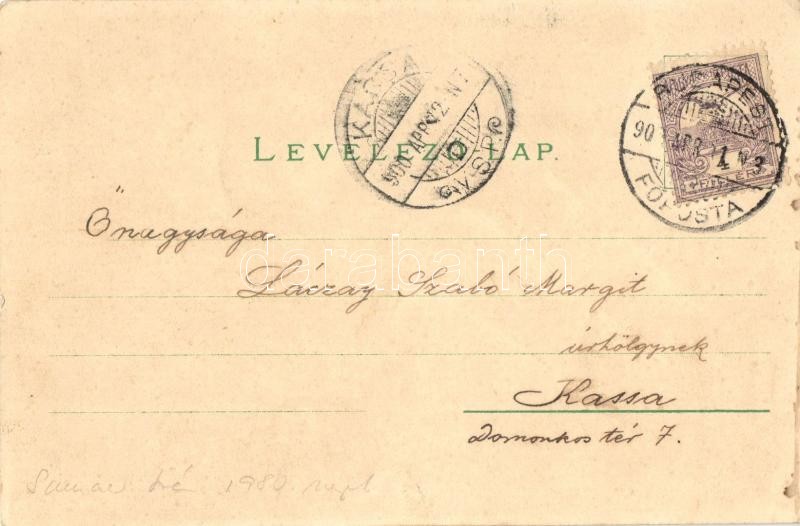 LEVELEZŐ-LAP.
KASSA
900 APR 12 N 7
BUDAPEST
90 APR 11 N 3
FŐPOSTA
Őnagysága
Láczay Szabó Margit
úrhölgynek
Kassa
Domonkos tér 7.
darabanth
1980. sept